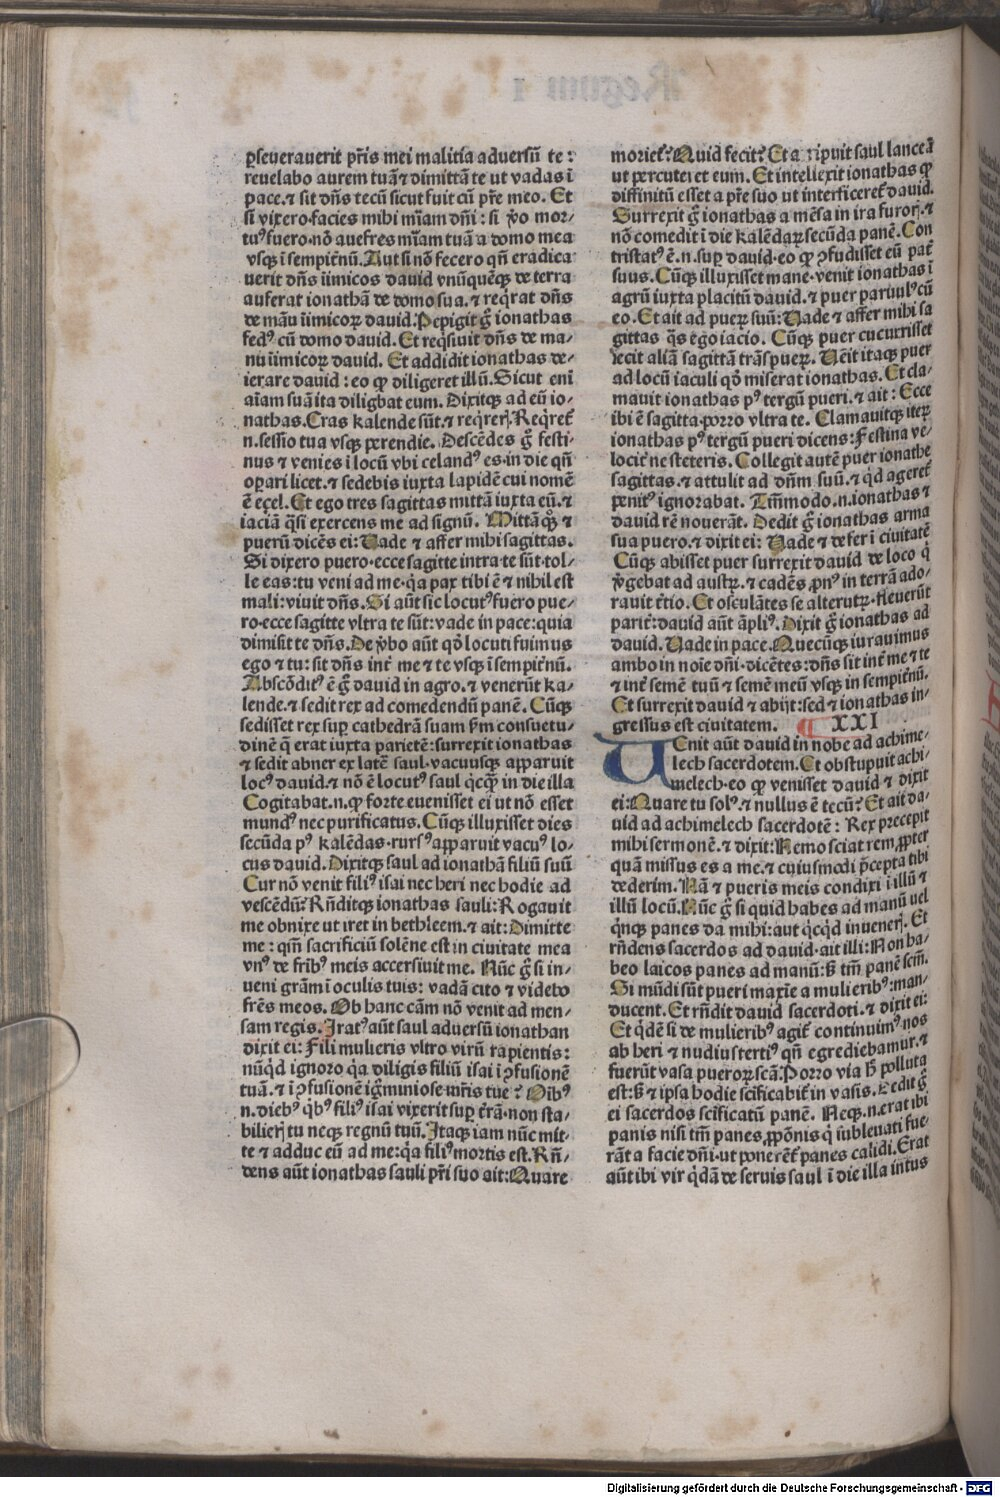 ꝑseuerauerit pr̃is mei malitia aduersũ te:
reuelabo aurem tuã ⁊ dimittã te ut vadas ĩ
pace. ⁊ sit dñs tecũ sicut fuit cũ pr̃e meo. Et
si vixero·facies mihi mĩam dñi: si ꝟo mor⸗
tuꝰ fuero·nõ auefres mĩam tuã a domo mea
vsqꝫ ĩ sempiťnũ. Aut si nõ fecero qñ eradica
uerit dñs ĩimicos dauid vnũquẽqꝫ de terra
auferat ionathã de domo sua. ⁊ reqͥrat dñs
de mãu ĩimicoꝝ dauid. Pepigit gͦ ionathas
fedꝰ cũ domo dauid. Et reqͥsiuit dñs de ma⸗
nu ĩimicoꝝ dauid. Et addidit ionathas de⸗
ierare dauid: eo ꝙ diligeret illũ. Sicut enĩ
aĩam suã ita diligbat eum. Dixitqꝫ ad eũ io⸗
nathas. Cras kalende sũt. ⁊ reqͥrerꝭ. Reqͥret᷑
.n. sessio tua vsqꝫ perendie. Descẽdes gͦ festi⸗
nus ⁊ venies ĩ locũ vbi celandꝰ es·in die qñ
oꝑari licet. ⁊ sedebis iuxta lapidẽ cui nomẽ
ẽ eçel. Et ego tres sagittas mittã iuxta eũ. ⁊
iaciã qͣsi exercens me ad signũ. Mittã qꝫ ⁊
puerũ dicẽs ei: Uade ⁊ affer mihi sagittas.
Si dixero puero·ecce sagitte intra te sũt·tol⸗
le eas: tu veni ad me·qͥa pax tibi ẽ ⁊ nihil est
mali: viuit dñs. Si aũt sic locutꝰ fuero pue⸗
ro·ecce sagitte vltra te sũt: vade in pace: quia
dimisit te dñs. De ꝟbo aũt qð locuti fuimus
ego ⁊ tu: sit dñs inť me ⁊ te vsqꝫ ĩ sempiťnũ.
Abscõditꝰ ẽ gͦ dauid in agro. ⁊ venerũt ka⸗
lende. ⁊ sedit rex ad comedendũ panẽ. Cũqꝫ
sedisset rex suꝑ cathedrã suam ẜm consuetu⸗
dinẽ q̃ erat iuxta parietẽ: surrexit ionathas
⁊ sedit abner ex latẽ saul·vacuusqꝫ apparuit
locꝰ dauid. ⁊ nõ ẽ locutꝰ saul qͥcqͣ in die illa
Cogitabat .n. ꝙ forte euenisset ei ut nõ esset
mundꝰ nec purificatus. Cũqꝫ illuxisset dies
secũda pꝰ kalẽdas·rursꝰ apparuit vacuꝰ lo⸗
cus dauid. Dixitqꝫ saul ad ionathã filiũ suũ
Cur nõ venit filiꝰ isai nec heri nec hodie ad
vescẽdũ? Rñditqꝫ ionathas sauli: Rogauit
me obnixe ut iret in bethleem. ⁊ ait: Dimitte
me: qm̃ sacrificiũ solẽne est in ciuitate mea
vnꝰ de fr̃ibꝰ meis accersiuit me. Nũc gͦ si in⸗
ueni grãm ĩ oculis tuis: vadã cito ⁊ videbo
fr̃es meos. Ob hanc cãm nõ venit ad men⸗
sam regis. Iratꝰ aũt saul aduersũ ionathan
dixit ei: Fili mulieris vltro virũ rapientis:
nũqͥd ignoro qͥa diligis filiũ isai ĩ ↄfusionẽ
tuã. ⁊ ĩ ↄfusionẽ igͦminiose mr̃is tue? Oĩbꝰ
.n. diebꝰ qͥbꝰ filiꝰ isai vixerit suꝑ ťrã·non sta⸗
bilierꝭ tu neqꝫ regnũ tuũ. Itaqꝫ iam nũc mit⸗
te ⁊ adduc eũ ad me: qͥa filiꝰ mortis est. Rñ⸗
dens aũt ionathas sauli pr̃i suo ait: Quare
moriet᷑? Quid fecit? Et arripuit saul lanceã
ut percuteret eum. Et intellexit ionathas ꝙ
diffinitũ esset a pr̃e suo ut interficeret᷑ dauid.
Surrexit gͦ ionathas a mẽsa in ira furorꝭ. ⁊
nõ comedit ĩ die kalẽdaꝝ secũda panẽ. Con
tristatꝰ ẽ .n. suꝑ dauid·eo ꝙ ↄfudisset eũ pat᷑
suus. Cũqꝫ illuxisset mane·venit ionathas ĩ
agrũ iuxta placitũ dauid. ⁊ puer paruulꝰ cũ
eo. Et ait ad pueꝝ suũ: Uade ⁊ affer mihi sa
gittas qͣs ego iacio. Cũqꝫ puer cucurrisset
iecit aliã sagittã trãs pueꝝ. Uẽit itaqꝫ puer
ad locũ iaculi qð miserat ionathas. Et cla⸗
mauit ionathas pꝰ tergũ pueri. ⁊ ait: Ecce
ibi ẽ sagitta·porro vltra te. Clamauitqꝫ iteꝝ
ionathas pꝰ tergũ pueri dicens: Festina ve⸗
lociť ne steteris. Collegit autẽ puer ionathe
sagittas. ⁊ attulit ad dñm suũ. ⁊ qͥd ageret᷑
penitꝰ ignorabat. Tm̃modo .n. ionathas ⁊
dauid rẽ nouerãt. Dedit gͦ ionathas arma
sua puero. ⁊ dixit ei: Uade ⁊ defer ĩ ciuitatẽ
Cũqꝫ abisset puer surrexit dauid de loco qͥ
ꝟgebat ad austꝝ. ⁊ cadẽs ꝓnꝰ in terrã ado⸗
rauit t̃tio. Et osculãtes se alterutꝝ·fleuerũt
pariť: dauid aũt ãpliꝰ. Dixit gͦ ionathas ad
dauid. Uade in pace. Quecũqꝫ iurauimus
ambo in noĩe dñi·dicẽtes: dñs sit inť me ⁊ te
⁊ inť semẽ tuũ ⁊ semẽ meũ vsqꝫ in sempiťnũ.
Et surrexit dauid ⁊ abijt: sed ⁊ ionathas in⸗
gressus est ciuitatem. XXI
UEnit aũt dauid in nobe ad achime⸗
lech sacerdotem. Et obstupuit achi⸗
melech·eo ꝙ venisset dauid ⁊ dixit
ei: Quare tu solꝰ. ⁊ nullus ẽ tecũ? Et ait da⸗
uid ad achimelech sacerdotẽ: Rex precepit
mihi sermonẽ. ⁊ dixit: Nemo sciat rem ꝓpter
quã missus es a me. ⁊ cuiusmodi p̃cepta tibi
dederim. Nã ⁊ pueris meis condixi ĩ illũ ⁊
illũ locũ. Nũc gͦ si quid habes ad manũ uel
qͥnqꝫ panes da mihi: aut qͥcqͥd inuenerꝭ. Et
rñdens sacerdos ad dauid·ait illi: Non ha⸗
beo laicos panes ad manũ: ß tm̃ panẽ scm̃.
Si mũdi sũt pueri maxĩe a mulieribꝰ: man⸗
ducent. Et rñdit dauid sacerdoti. ⁊ dixit ei:
Et qͥdẽ si de mulieribꝰ agit᷑ continuimꝰ nos
ab heri ⁊ nudiustertiꝰ qñ egrediebamur. ⁊
fuerũt vasa pueroꝝ scã. Porro via h̃ polluta
est: ß ⁊ ipsa hodie scĩficabit᷑ in vasis. Dedit gͦ
ei sacerdos scĩficatũ panẽ. Neqꝫ .n. erat ibi
panis nisi tm̃ panes ꝓpõnis qͥ subleuati fue⸗
rãt a facie dñi·ut ponerẽt᷑ panes calidi. Erat
aũt ibi vir qͥdã de seruis saul ĩ die illa intus
Digitalisierung gefördert durch die Deutsche Forschungsgemeinschaft - DFG